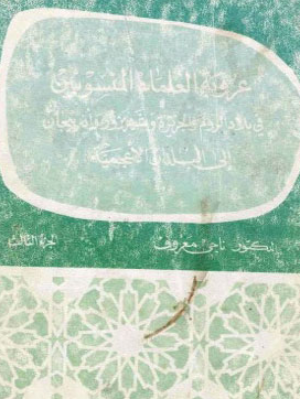 عروبة العلماء المنسوبين
في بلاد الروم والجزيرة وشهرزور واذربيجان
إلى البلدان الأعجمية
دكتور ناجي معروف
الجزء الثالث